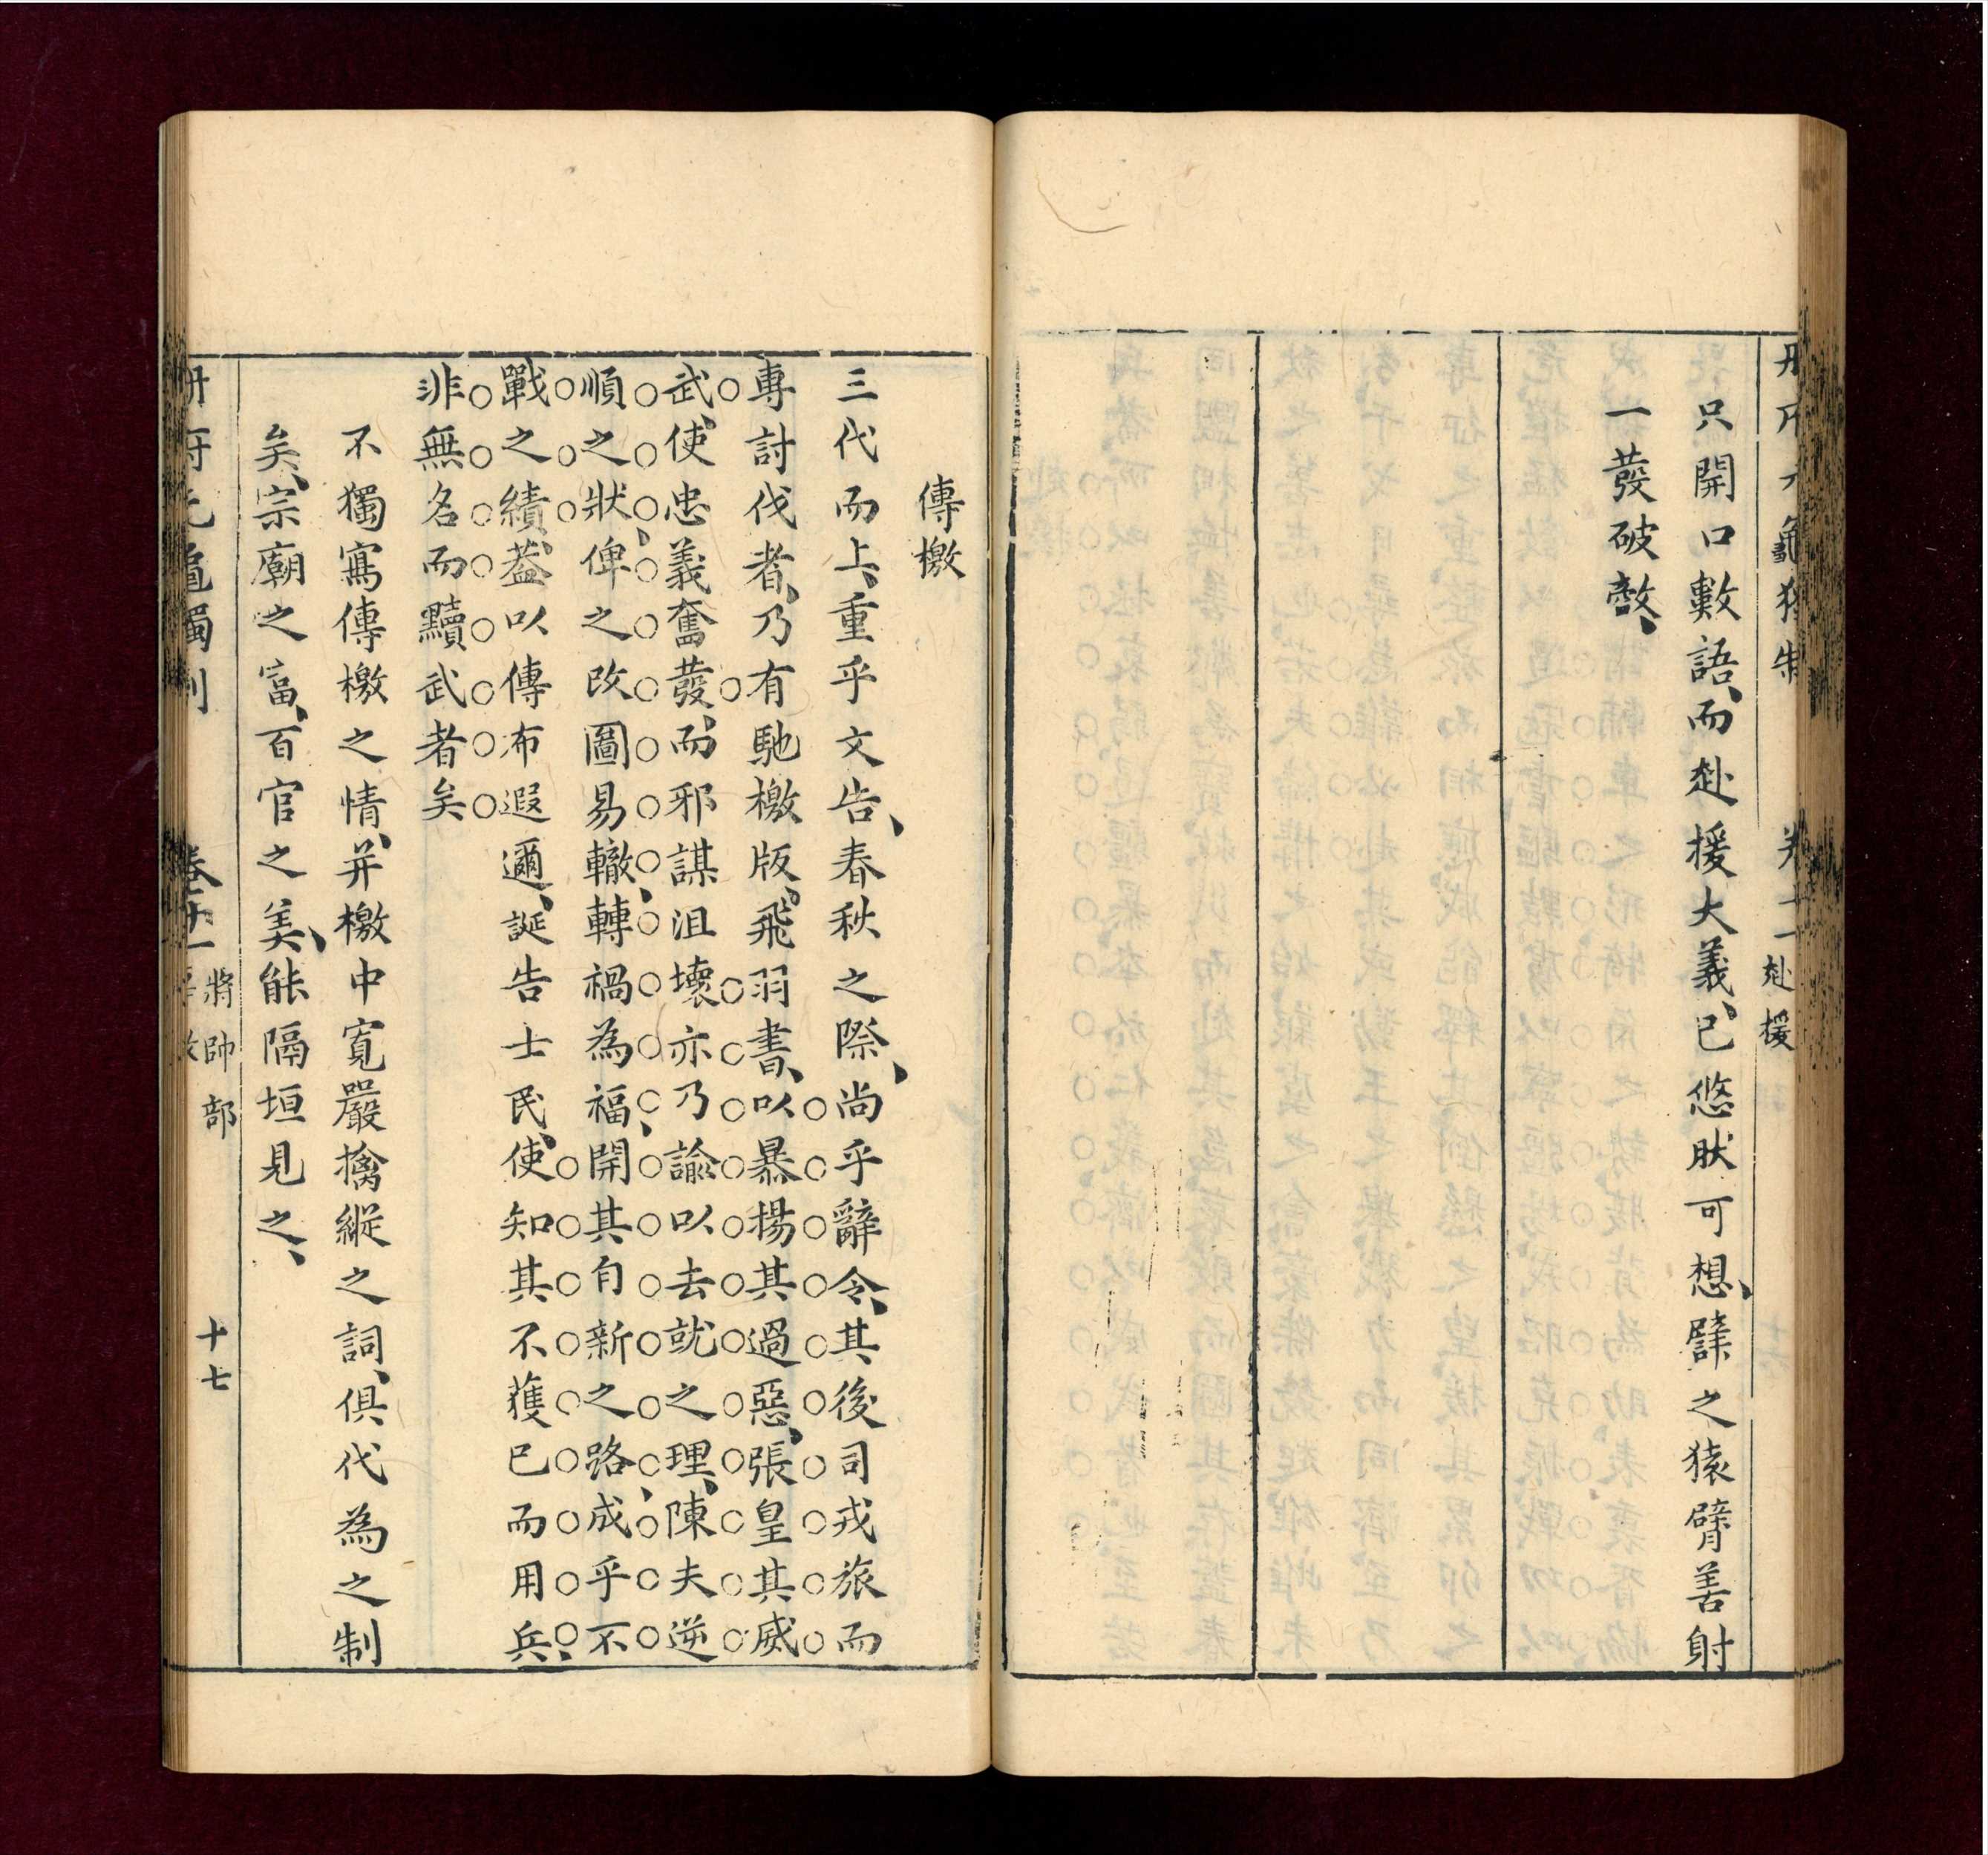 只開口數語、而赴援大義、已悠肰可想、譬之猿臂善射
一發破的、
傳檄
三代而上、重乎文告、春秋之際、尚乎辭令、其後司戎旅而
專討伐者、乃有馳檄版、飛羽書、以暴揚其過惡、張皇其威
武、使忠義奮發、而邪謀沮壞、亦乃諭以去就之理、陳夫逆
順之狀、俾之改圖易轍、轉禍為福、開其自新之路、成乎不
戰之績、葢以傳布遐邇、誕告士民、使知其不獲已而用兵、
非無名而黷武者矣
不獨寫傳檄之情、并檄中寬嚴擒縱之詞、俱代為之制
矣、宗廟之富、百官之美、能隔垣見之、
赴援
將帥部
十七